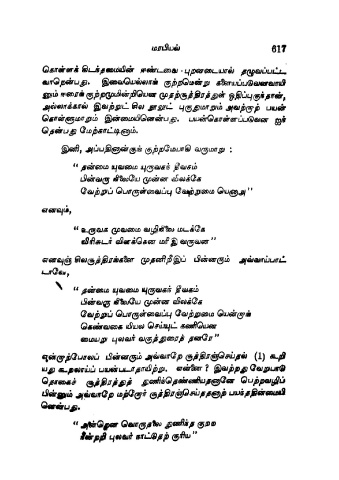 மரபியல் 617
கொள்ளக் கிடந்தமையின் ஈண்டவை புறனடையால் தழுவப்பட்ட
வாறென்பது. இவையெல்லாக் குற்றமென்று களையப்படுவனவாயி
னும் ஈரைக்குற்றமுமின்றியென முதற்சூத்திரத்துள் ஒதிப்புகுந்தான்,
அல்லாக்கால் இவற்றுட் சில நூலுட் புகுதுமாறும் அவற்றாற் பயன்
கொள்ளுமாறும் இன்மையினென்பது. பயன்கொள்ளப்படுவன ஐச்
தென்பது மேற்காட்டினும்.
இனி, அப்பதினான்குங் குற்றமேயாகி வருமாறு :
“ தன்மை யுவமை யுருவகந் தீவகம்
பின்வரு நிலையே முன்ன விலக்கே
வேற்றுப் பொருள்வைப்பு வேற்றுமை யெனஅ”
எனவும்,
“ உருவக முவமை வழிநிலை மடக்கே
விரிசுடர் விளக்கென மரீஇ வருவன”
எனவுஞ் சிலசூத்திரங்களை முதனிறீஇப் பின்னரும் அவ்வாய்பாட்
டாலே,
“ தன்மை யுவமை யுருவகந் தீவகம்
பின்வரு நிலையே முன்ன விலக்கே
வேற்றுப் பொருள்வைப்பு வேற்றுமை யென்றாங்
கெண்வகை யியல செய்யுட் கணியென
மையறு புலவர் வகுத்துரைத் தனரே”
என்றாற்போலப் பின்னரும் அவ்வாறே சூத்திரஞ்செய்தல் (1) கூறி
யது கூறலாய்ப் பயன்படாதாயிற்று. என்னை ? இவற்றது வேறுபாடு
தொகைச் சூத்திரத்துத் துணிந்தெண்ணியதனானே பெற்றவழிப்
பின்னும் அவ்வாறே மற்றோர் சூத்திரஞ்செய்ததனாற் பயந்ததின்மையி
னென்பது.
“ அன்னதென வொருதலை துணிந்த குறை